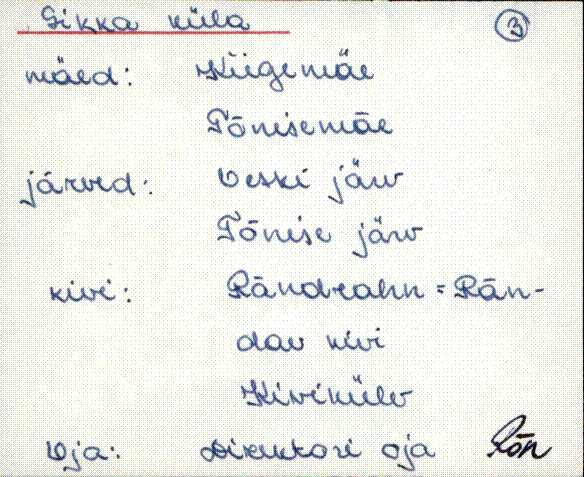 Sikka küla ③
mäed: Kiigemäe
Tõnisemäe
järved: Veski järv
Tõnise järv
kivi: Rändrahn = Rän-
dav kivi
Kivikülv
Oja: Direktori oja Rõn